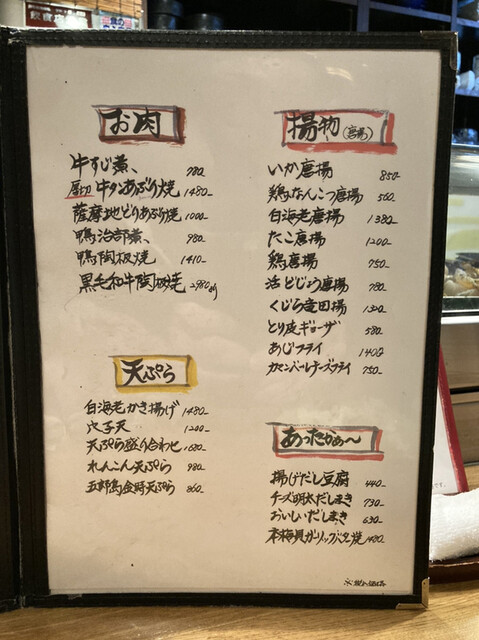 お肉
牛すじ煮、 780-
厚切 牛タンあぶり焼 1480-
薩摩地どりあぶり焼 1000-
鴨治部煮、 980-
鴨陶板焼 1410-
黒毛和牛陶板焼 2980
天ぷら
白海老かき揚げ 1480-
穴子天 1200-
天ぷら盛り合わせ 1680-
れんこん天ぷら 980-
五郎島金時天ぷら 860-
揚物(唐揚)
いか唐揚 850-
鶏なんこつ唐揚 560-
白海老唐揚 1380-
たこ唐揚 1200-
鶏唐揚 750-
活どじょう唐揚 780-
くじら竜田揚 1300-
とり皮ギョーザ 580-
あじフライ 1400
カマンベールチーズフライ 750-
あったかぁ〜
揚げだし豆腐 440-
チーズ明太だしまき 730-
おいしいだしまき 630-
本梅貝ガーリックバタ焼 1480-